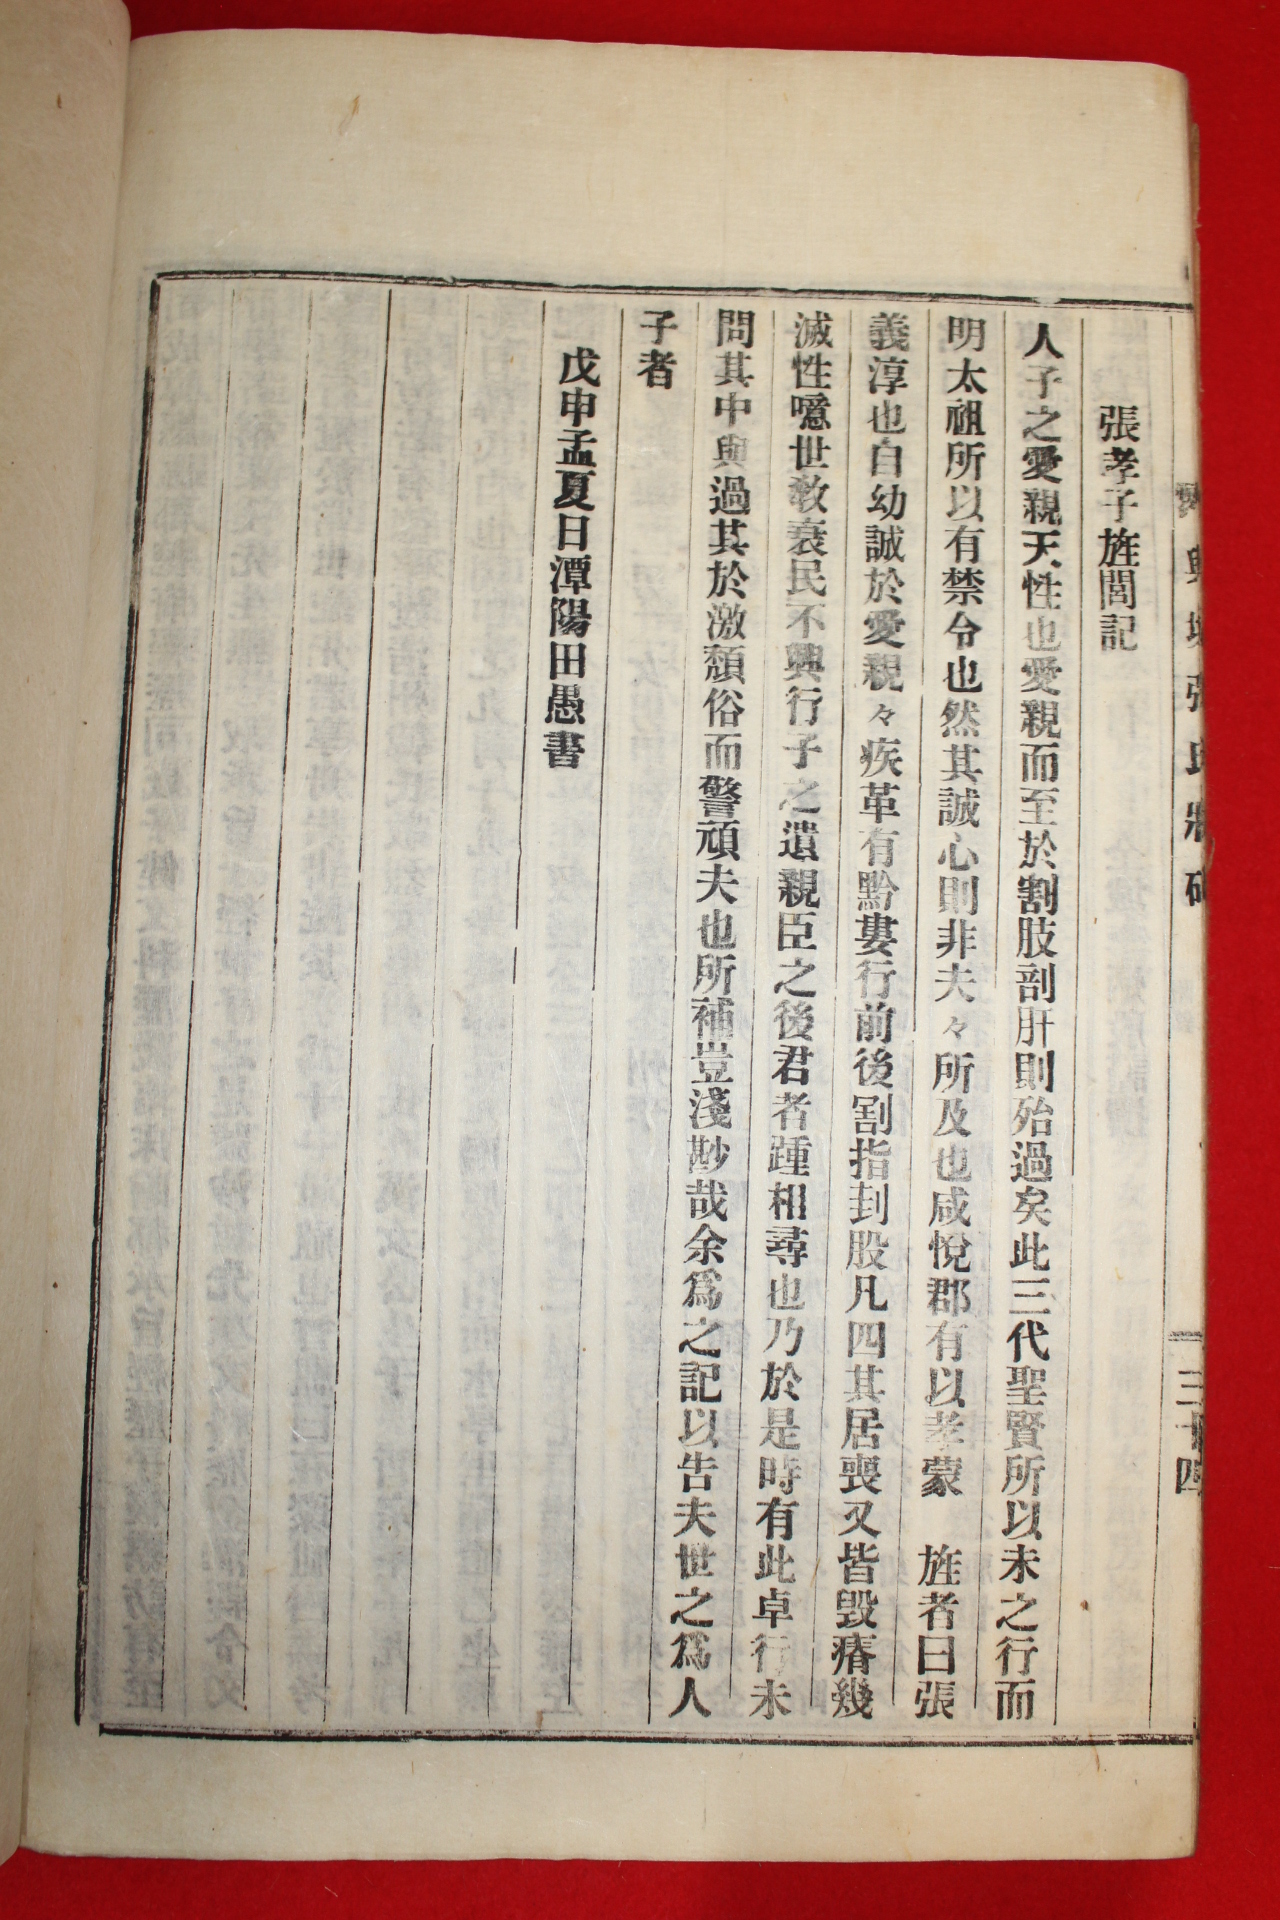 張孝子旌閭記
人子之愛親天性也愛親而至於割肢剖肝則殆過矣此三代聖賢所以未之行而
明太祖所以有禁令也然其誠心則非夫々所及也咸悅郡有以孝蒙　旌者曰張
義淳也自幼誠於愛親々疾革有黔婁行前後割指刲股凡四其居喪又皆毀瘠幾
滅性噫世敎衰民不興行子之遺親臣之後君者踵相尋也乃於是時有此卓行未
問其中與過其於激頹俗而警頑夫也所補豈淺尠哉余爲之記以告夫世之爲人
子者
戊申孟夏日潭陽田愚書
興城張氏
三十四